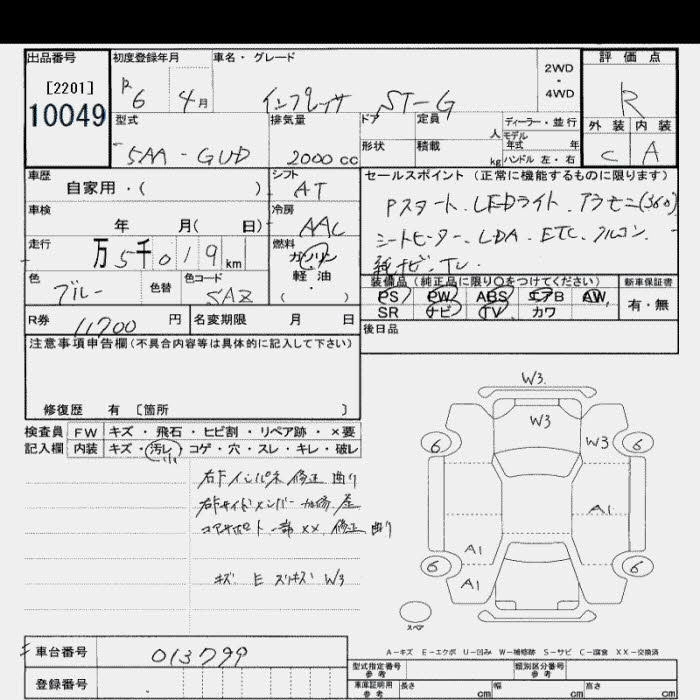 出品番号 初度登録年月 車名・グレード 2WD・4WD 評価点
[2201]
10049
R6 4月 インプレッサ ST-G R
型式 排気量 ドア 定員 人 ディーラー・並行 外装 内装
モデル年式 年
5AA-GUD 2000cc 形状 積載 kg ハンドル 左・右 C A
車歴 シフト セールスポイント (正常に機能するものに限ります)
自家用・( ) AT
Pスタート.LEDライト.アラモニ(360)
車検 冷房
年 月( 日) AAC
シートヒーター.LDA.ETC.アルコン.
走行 燃料
万5千019km ガソリン
純ナビ.TV.
軽・油
・( )
色 色替 色コード
ブルー SAZ
装備品 (純正品に限り○をつけてください) 新車保証書
PS PW ABS エアB AW 有・無
SR ナビ TV カワ
R券 11700円 名変期限 月 日 後日品
注意事項申告欄(不具合内容等は具体的に記入して下さい)
修復歴 有 〔箇所 〕
検査員 FW キズ・飛石・ヒビ割・リペア跡・×要
記入欄 内装 キズ・汚レ・コゲ・穴・スレ・キレ・破レ
小
右Fインパネ修正曲り
右Fサイドメンバー 座
コアサポート一部××.修正曲り
キズ E スリキズ W3
W3
W3
6 W3 6
A1
A1
6 A1 6
スペア
A-キズ E-エクボ U-凹み W-補修跡 S-サビ C-腐食 XX-交換済
車台番号 013799
登録番号
型式指定番号 参考 類別区分番号 参考
車庫証明用 参考 長さ cm 幅 cm 高さ cm